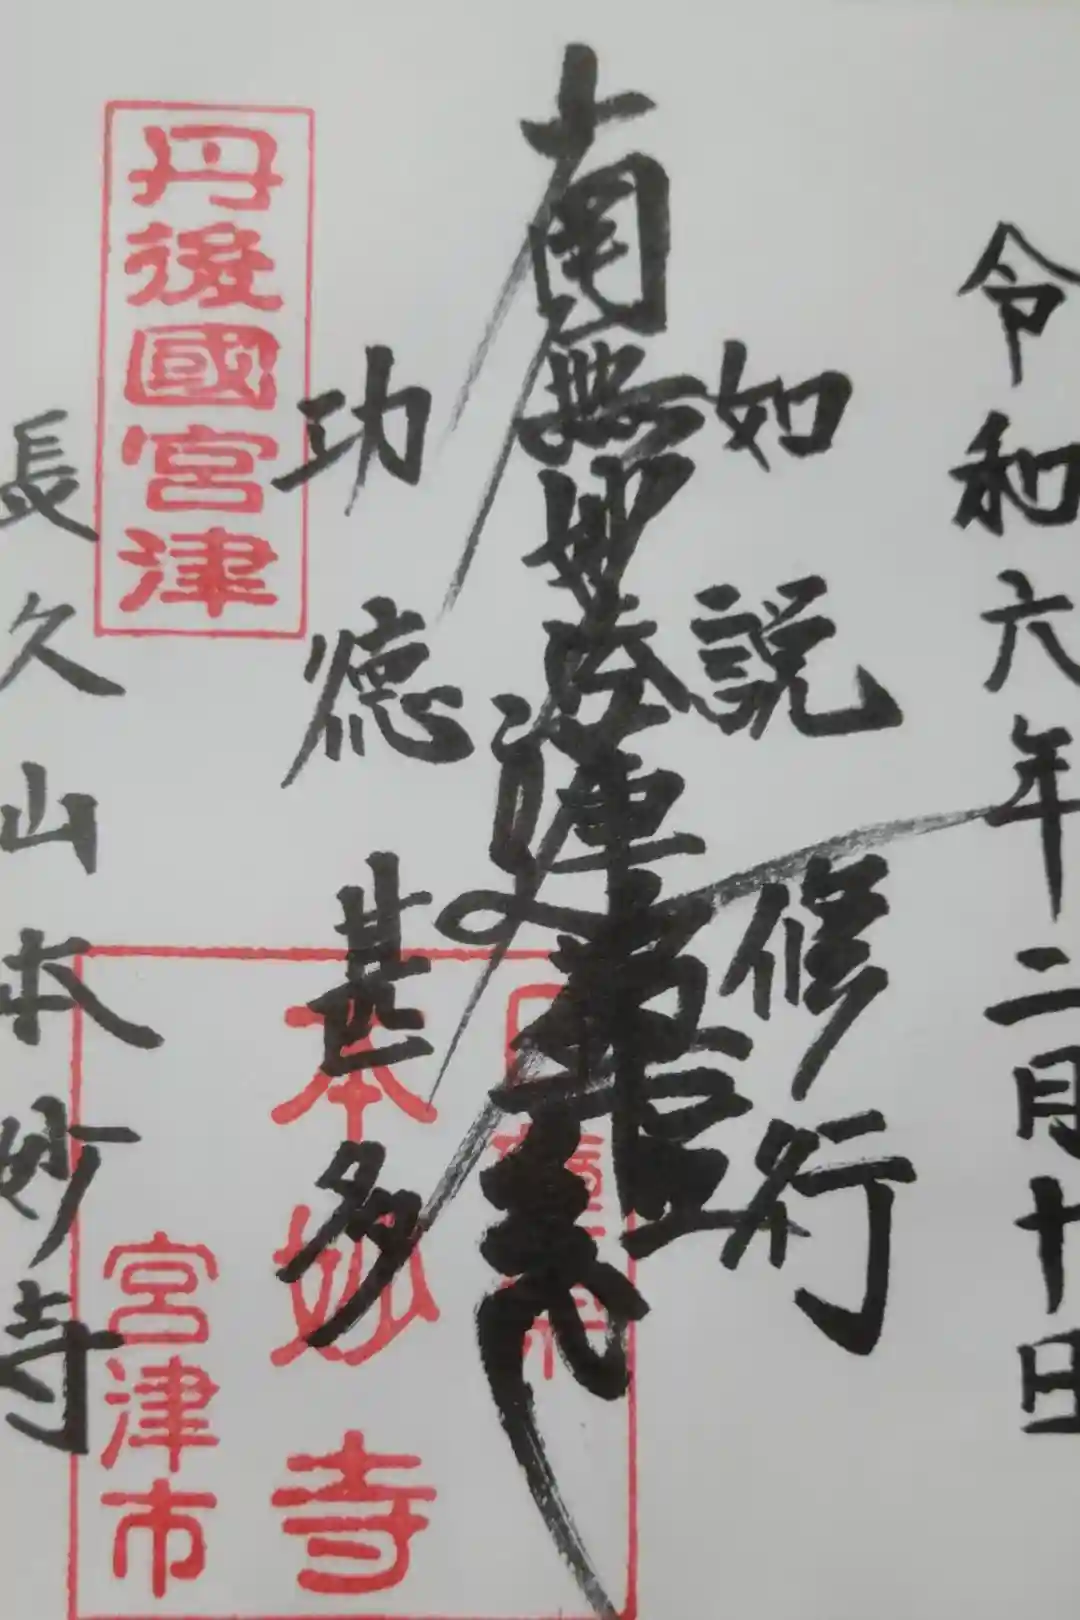 令和六年二月十日
如説修行
南無妙法蓮華経
功徳甚多
丹後國宮津
長久山本妙寺
日蓮宗
本妙寺
宮津市